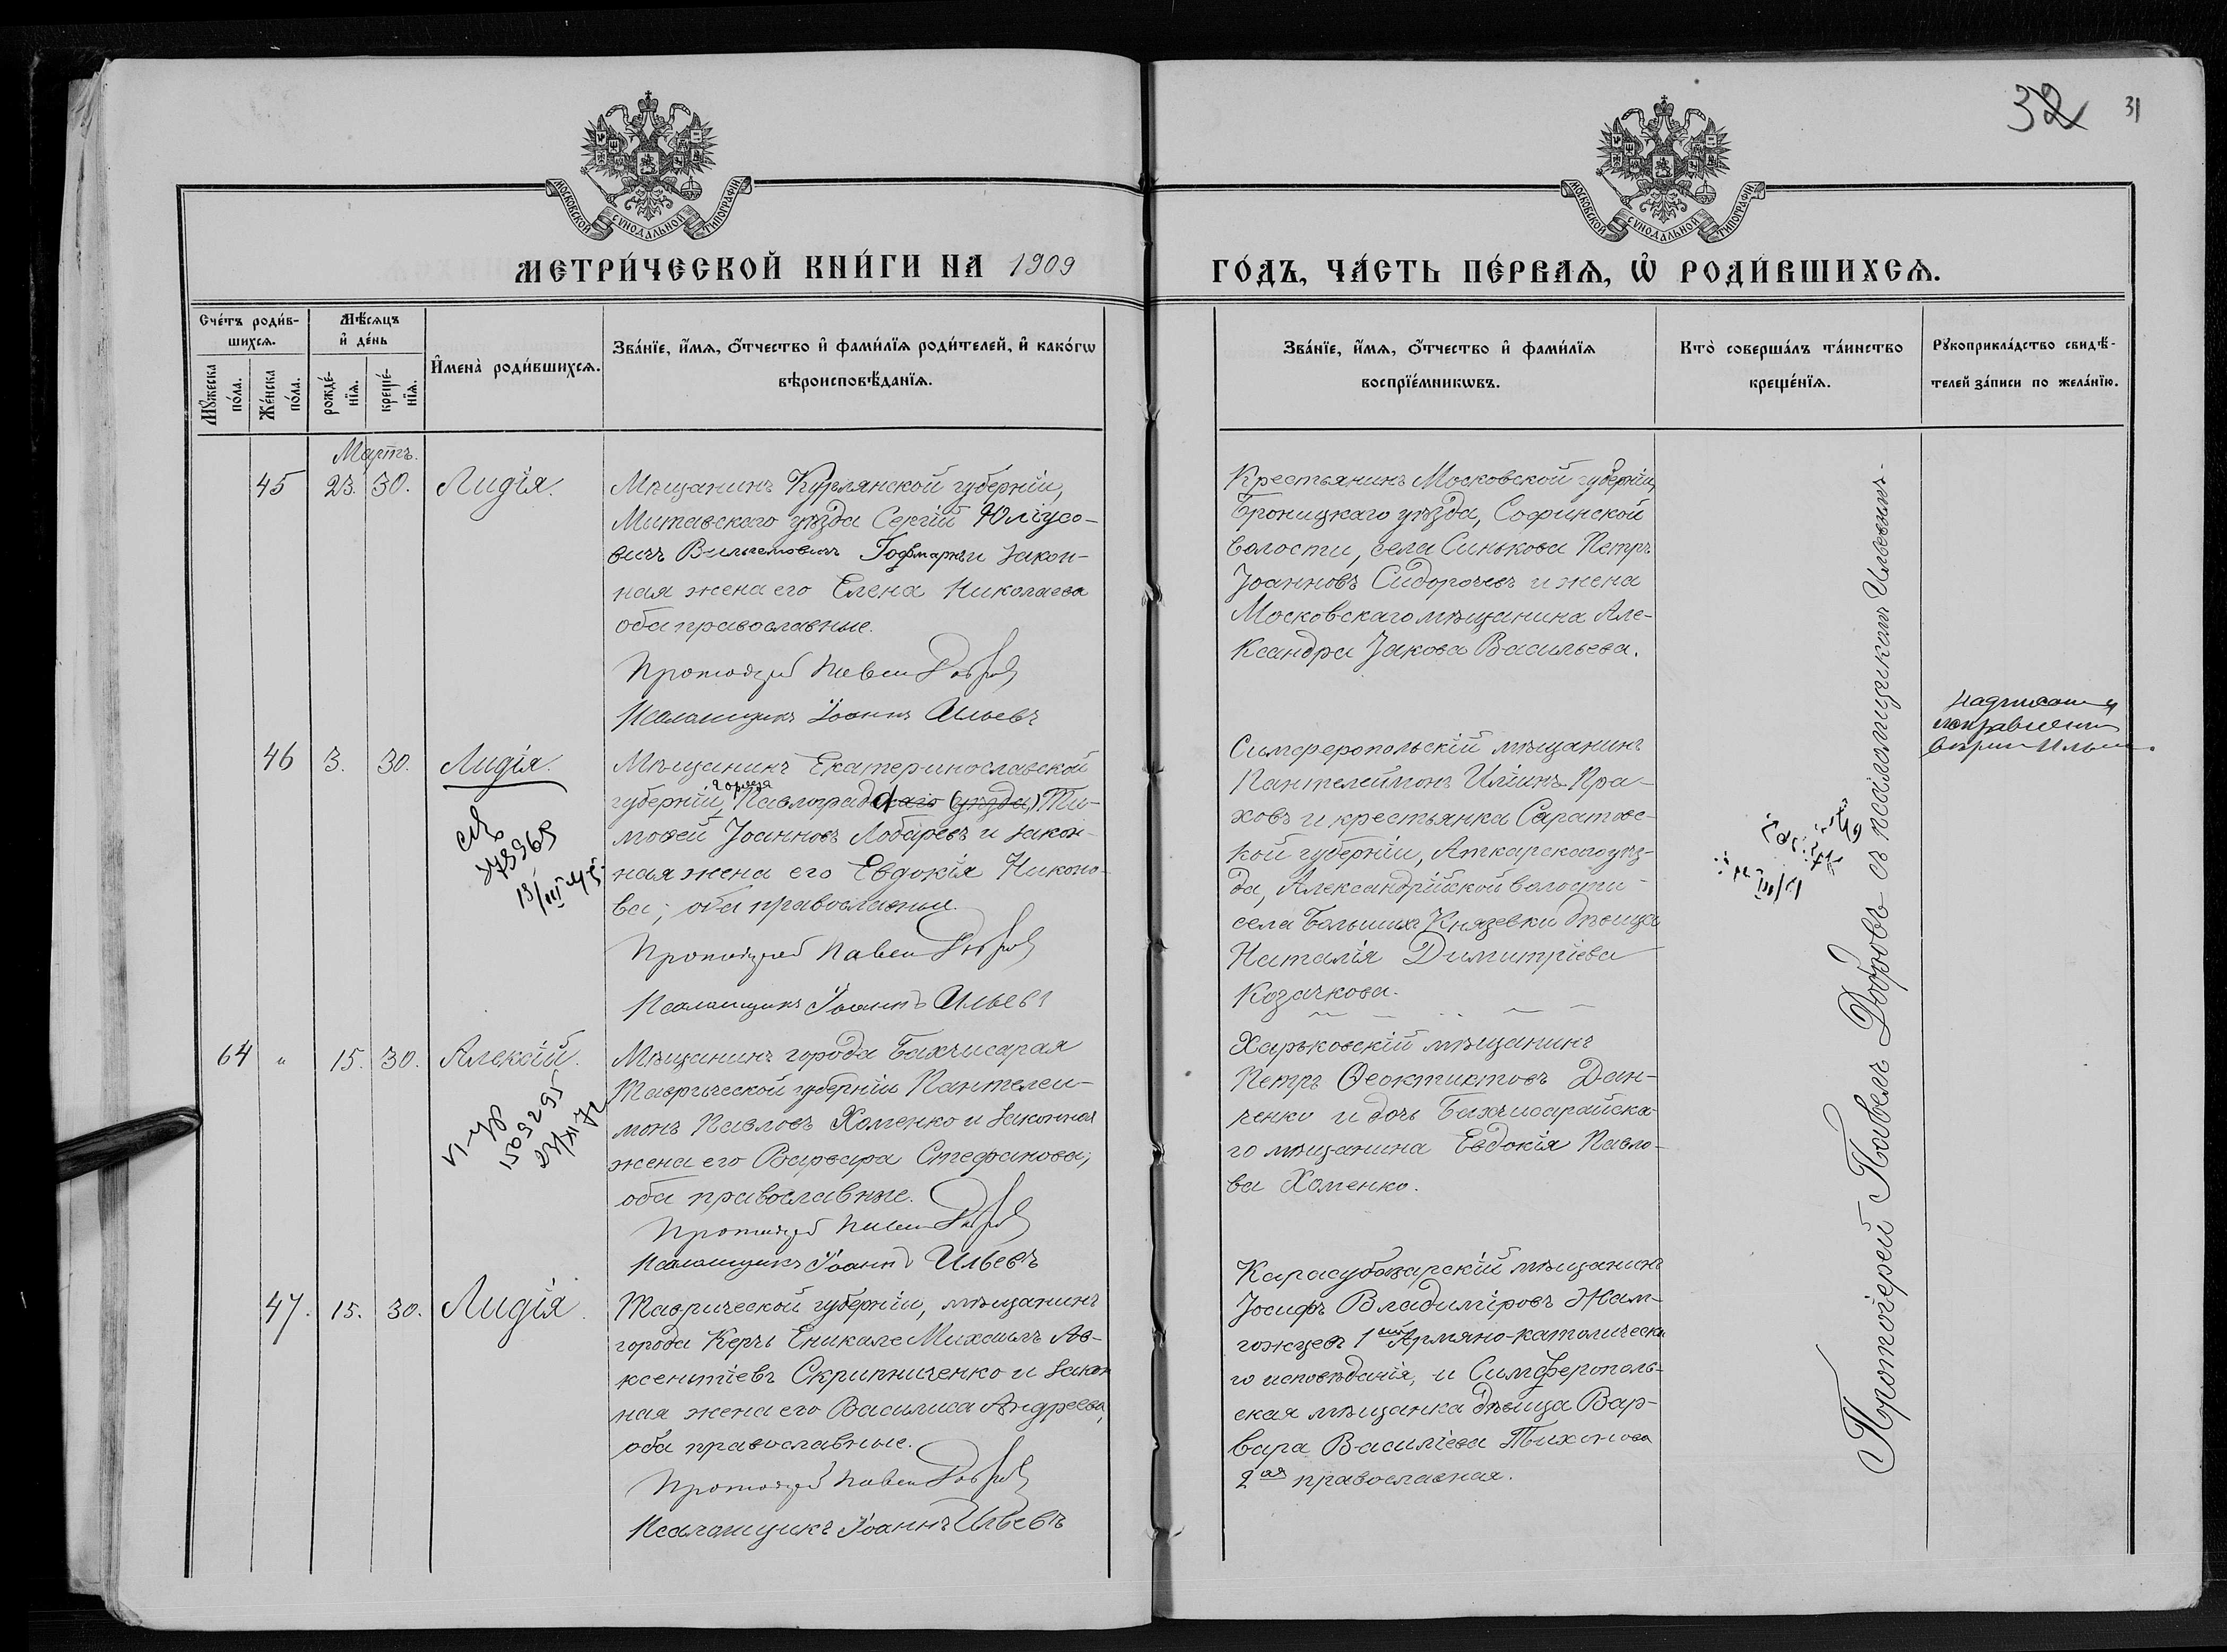 32 31
МОСКОВСКОЙ СѴНОДАЛЬНОЙ ТИПОГРАФІИ
МОСКОВСКОЙ СѴНОДАЛЬНОЙ ТИПОГРАФІИ
МЕТРИ́ЧЕСКОЙ КНИ́ГИ НА 1909
ГО́ДЪ, ЧА́СТЬ ПЕ́РВАѦ, Ѡ҆ РОДИ́ВШИХСѦ.
Сче́тъ роди́в-
шихсѧ.
Мꙋ́жеска по́ла.
Же́нска по́ла.
Мѣ́сѧцъ
и҆ де́нь
рожде́-
нїѧ.
креще́-
нїѧ.
И҆мена̀ роди́вшихсѧ.
Зва́нїе, и҆́мѧ, ѻ҆́тчество и҆ фами́лїѧ роди́телей, и҆ како́гѡ
вѣроисповѣ́данїѧ.
Зва́нїе, и҆́мѧ, ѻ҆́тчество и҆ фами́лїѧ
воспрїе́мникѡвъ.
Кто̀ соверша́лъ та́инство
креще́нїѧ.
Рꙋкоприкла́дство свидѣ́-
телей за́писи по жела́нїю.
Мартъ.
45 23. 30. Лидія.
Мѣщанинъ Курлянской губерніи,
Митавскаго уѣзда Сергій Юліусо-
вичъ Вильгемовичъ Гофмаркъ и закон-
ная жена его Елена Николаева
оба православные.
Протоіерей Павелъ Добровъ
Псаломщикъ Іоаннъ Ильевъ
Крестьянинъ Московской губерніи,
Броницкаго уѣзда, Софинской
волости, села Синькова Петръ
Іоанновъ Сидорочевъ и жена
Московскаго мѣщанина Але-
ксандра Іакова Васильева.
46 3. 30. Лидія.
378965
13/III
Мѣщанинъ Екатеринославской
губерніи, города Павлоградскаго (уѣзда) Ти-
моѳей Іоанновъ Лобаревъ и закон-
ная жена его Евдокія Никоно-
ва; оба православные.
Протоіерей Павелъ Добровъ
Псаломщикъ Іоаннъ Ильевъ
Симферопольскій мѣщанинъ
Пантелеймонъ Иліинъ Пра-
ховъ и крестьянка Саратовс-
кой губерніи, Аткарскаго уѣз-
да, Александрійской волости
села Большихъ Князевки дѣвица
Наталія Димитріева
Козачкова.
64 " 15. 30. Алексій.
1505295
Мѣщанинъ города Бахчисарая
Таврической губерніи Пантелеи-
монъ Павловъ Хоменко и законная
жена его Варвара Стефанова;
оба православные.
Протоіерей Павелъ Добровъ
Псаломщикъ Іоаннъ Ильевъ
Харьковскій мѣщанинъ
Петръ Ѳеоктистовъ Дан-
ченко и дочь Бахчисарайска-
го мѣщанина Евдокія Павло-
ва Хоменко.
47. 15. 30. Лидія.
Таврической губерніи, мѣщанинъ
города Керчь Еникале Михаилъ Ав-
ксентіевъ Скрипниченко и закон
ная жена его Василиса Андреева,
оба православные.
Протоіерей Павелъ Добровъ
Псаломщикъ Іоаннъ Ильевъ
Карасубазарскій мѣщанинъ
Іосифъ Владиміровъ Жам-
гожцевъ 1ый Армяно-католическа
го исповѣданія, и Симферополь-
ская мѣщанка дѣвица Вар-
вара Василіева Тихонова
2ая православная.
Протоіерей Павелъ Добровъ съ псаломщикомъ Ильевымъ.